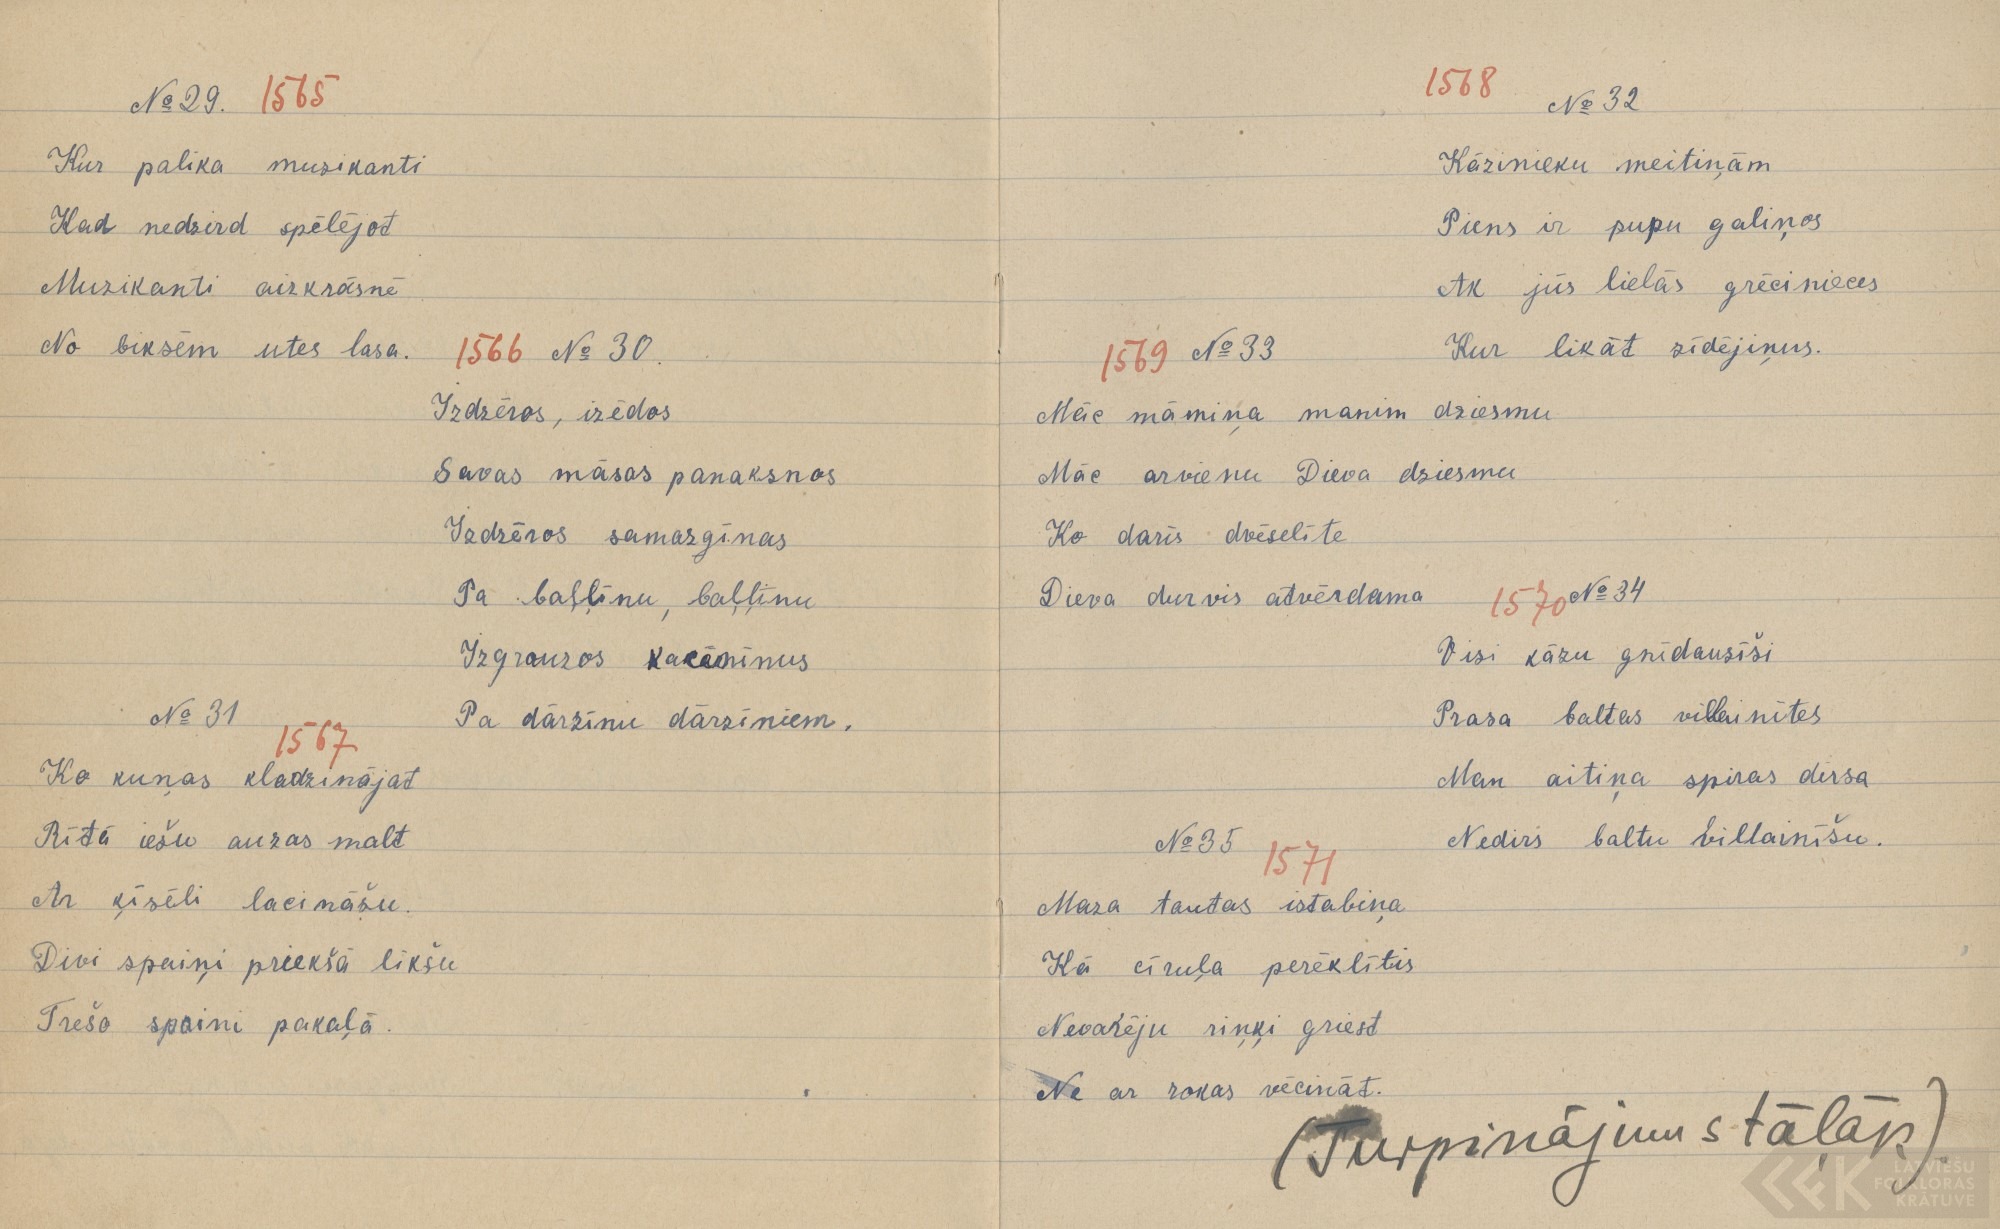 № 29. 1565
Kur palika muzikanti
Kad nedzird spēlējot
Muzikanti aizkrāsnē
No biksēm utes lasa.
1566 № 30.
Izdzēros, izēdos
Savas māsas panaksnos
Izdzēros samazgīnas
Pa baļļīnu, baļļīnu
Izgrauzos kacēnīnus
Pa dārzīnu dārzīniem.
№ 31
1567
Ko kuņas kladzinājat
Rītā iešu auzas malt
Ar ķīsēli lacināšu.
Divi spaiņi priekšā likšu
Trešo spaini pakaļā.
1568 № 32
Kāzinieku meitiņām
Piens ir pupu galiņos
Ak jūs lielās grēcinieces
Kur likāt zīdējiņus.
1569 № 33
Māc māmiņa manim dziesmu
Māc arvienu Dieva dziesmu
Ko darīs dvēselīte
Dieva durvis atvērdama
1570 № 34
Visi kāzu gnīdausīši
Prasa baltas villainītes
Man aitiņa spiras dirsa
Nedirs baltu villainīšu.
№ 35
1571
Maza tautas istabiņa
Kā cīruļa perēklītis
Nevarēju riņķi griest
Ne ar rokas vēcināt.
(Turpinājums tālāk).
LATVIEŠU
FOLKLORAS
KRĀTUVE